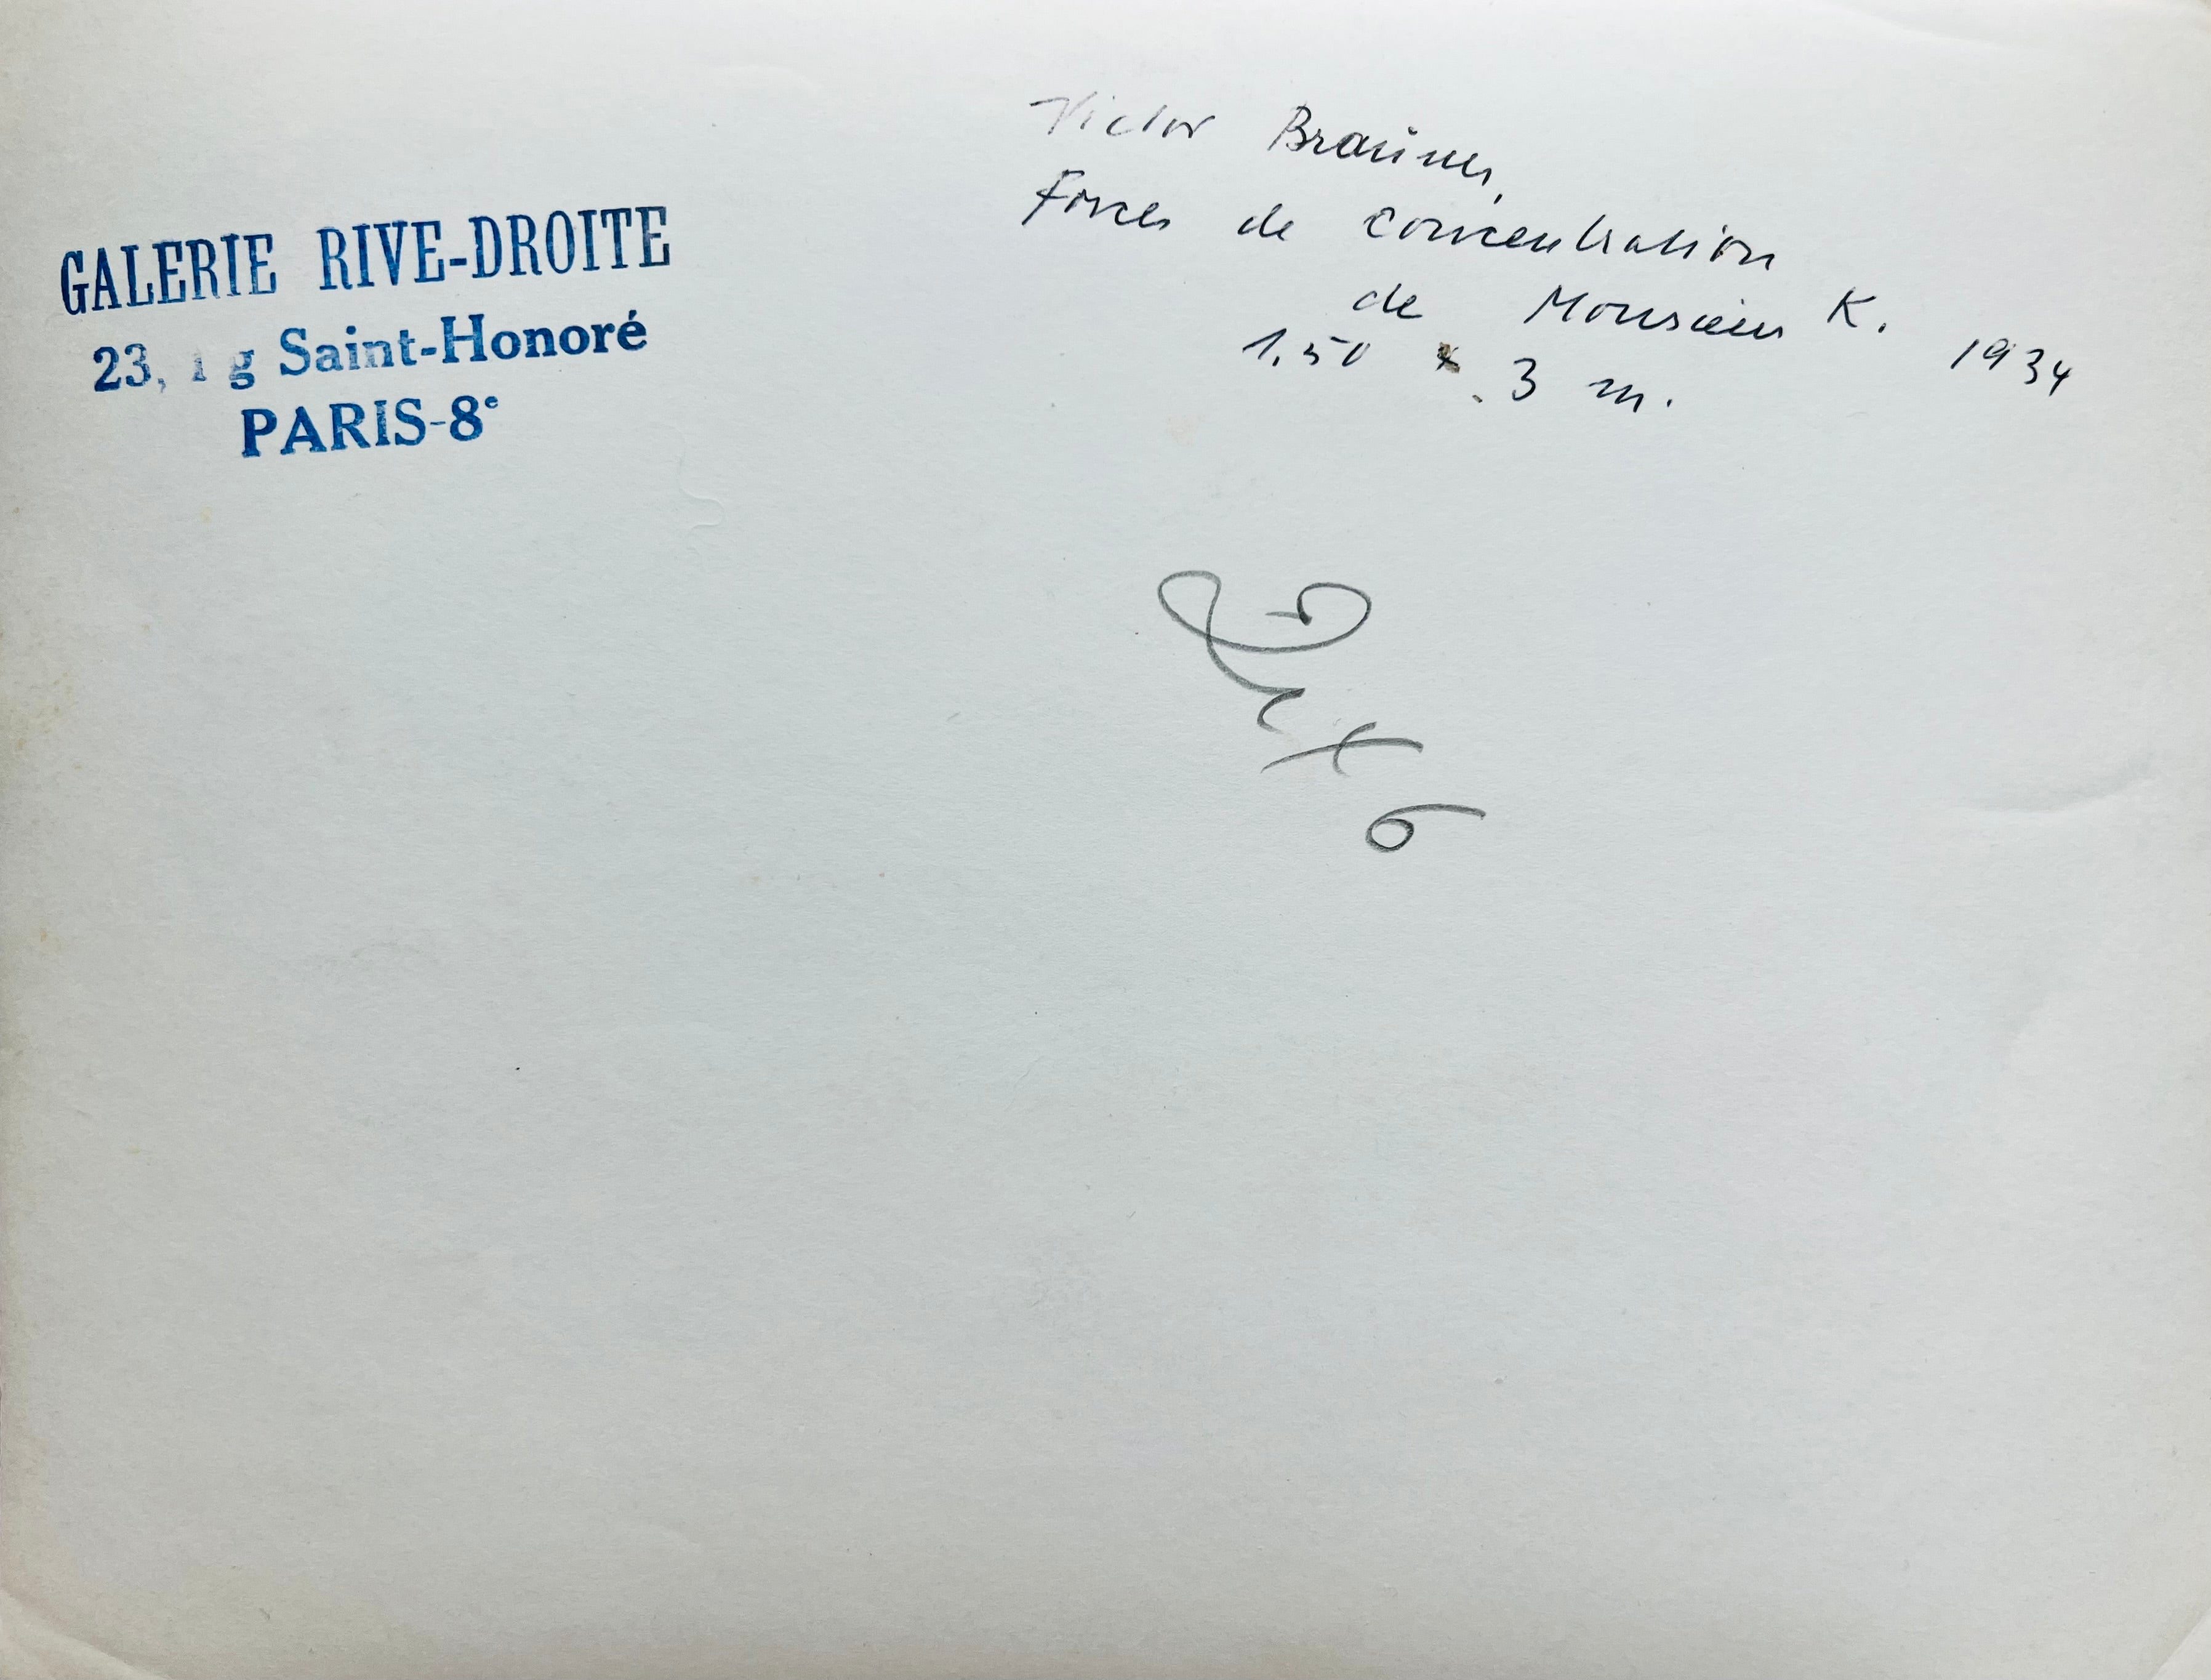 GALERIE RIVE-DROITE
23, g Saint-Honoré
PARIS-8e
Victor Brauner,
Forces de concentration
de Monsieur K. 1934
1.50 x 3 m.
6